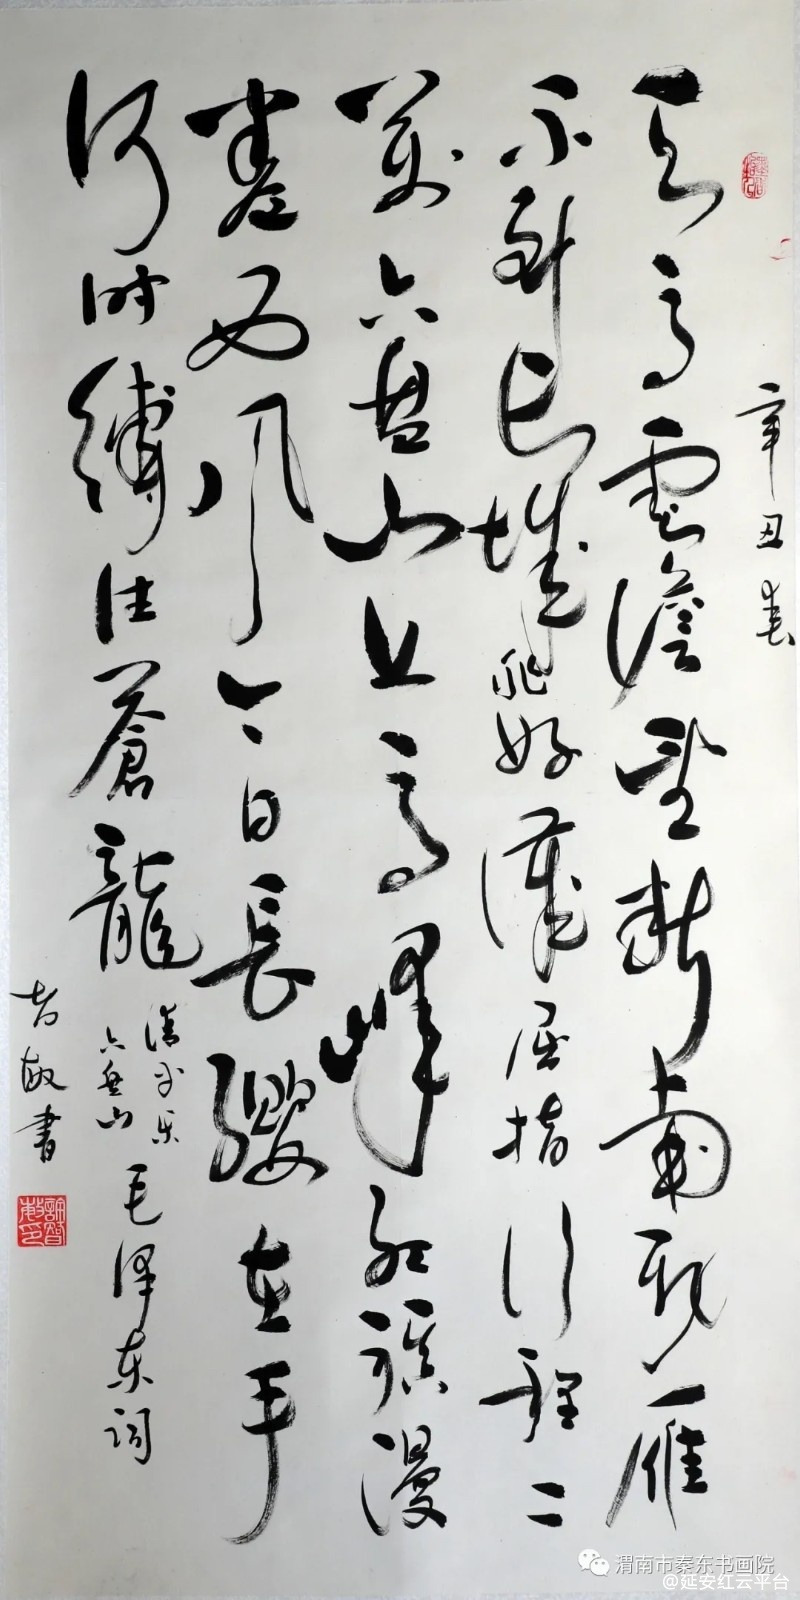 辛丑春
天高雲澹望斷南飛雁
不到长城非好漢屈指行程二
萬六盘山上高峰红旗漫
卷西风今日長缨在手
何时缚住蒼龍
清平乐
六盘山
毛泽东词
智敏書
渭南市秦东书画院
@延安红云平台